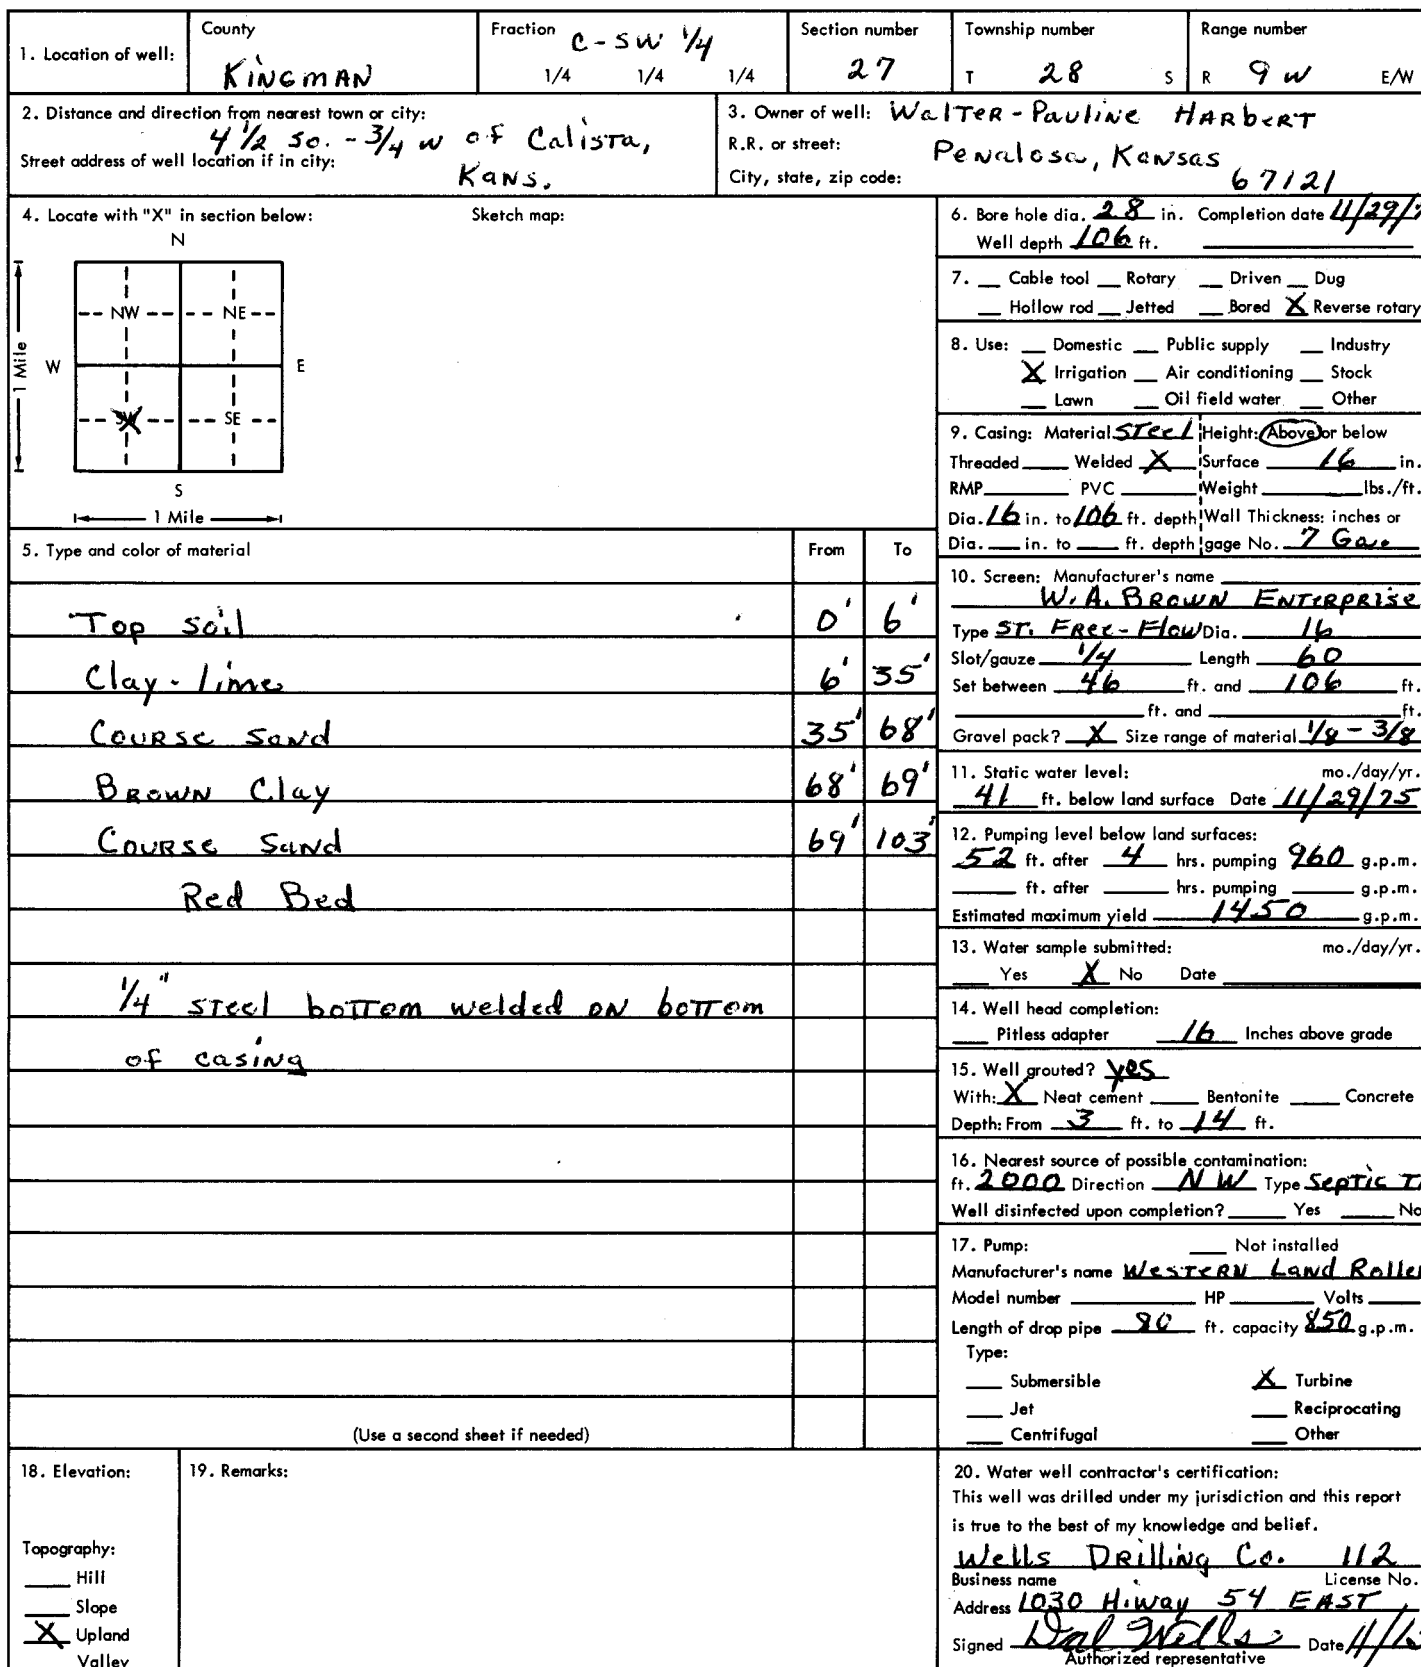 1. Location of well: County KINGMAN Fraction C-SW 1/4 1/4 1/4 1/4 Section number 27 Township number T 28 S Range number R 9 W E/W
2. Distance and direction from nearest town or city: 4 1/2 So. - 3/4 W of Calista,
Street address of well location if in city: KANS.
3. Owner of well: WalTER-Pauline HARbERT
R.R. or street: Penalosa, Kansas
City, state, zip code: 67121
4. Locate with "X" in section below: Sketch map:
N
NW NE
W E
1 Mile
SW X SE
S
1 Mile
5. Type and color of material From To
Top soil 0' 6'
Clay-lime 6' 35'
COURSE SAND 35' 68'
BROWN Clay 68' 69'
COURSE SAND 69' 103'
Red Bed
1/4" STEEl boTTom welded ON boTTom
of casing
(Use a second sheet if needed)
6. Bore hole dia. 28 in. Completion date 11/29/
Well depth 106 ft.
7. Cable tool Rotary Driven Dug
Hollow rod Jetted Bored X Reverse rotary
8. Use: Domestic Public supply Industry
X Irrigation Air conditioning Stock
Lawn Oil field water Other
9. Casing: Material STEEl Height: Above or below
Threaded Welded X Surface 16 in.
RMP PVC Weight lbs./ft.
Dia. 16 in. to 106 ft. depth Wall Thickness: inches or
Dia. in. to ft. depth gage No. 7 Ga.
10. Screen: Manufacturer's name
W.A. BROWN ENTERPRISE
Type ST. FREE-FLOW Dia. 16
Slot/gauze 1/4 Length 60
Set between 46 ft. and 106 ft.
ft. and ft.
Gravel pack? X Size range of material 1/8 - 3/8
11. Static water level: mo./day/yr.
41 ft. below land surface Date 11/29/75
12. Pumping level below land surfaces:
52 ft. after 4 hrs. pumping 960 g.p.m.
ft. after hrs. pumping g.p.m.
Estimated maximum yield 1450 g.p.m.
13. Water sample submitted: mo./day/yr.
Yes X No Date
14. Well head completion:
Pitless adapter 16 Inches above grade
15. Well grouted? yes
With: X Neat cement Bentonite Concrete
Depth: From 3 ft. to 14 ft.
16. Nearest source of possible contamination:
ft. 2000 Direction NW Type SEPTIC T
Well disinfected upon completion? Yes No
17. Pump: Not installed
Manufacturer's name WESTERN Land Roller
Model number HP Volts
Length of drop pipe 80 ft. capacity 850 g.p.m.
Type:
Submersible X Turbine
Jet Reciprocating
Centrifugal Other
18. Elevation:
Topography:
Hill
Slope
X Upland
Valley
19. Remarks:
20. Water well contractor's certification:
This well was drilled under my jurisdiction and this report
is true to the best of my knowledge and belief.
Wells DRilling Co. 112
Business name License No.
Address 1030 Hiway 54 EAST
Signed Wells Date 11/
Authorized representative